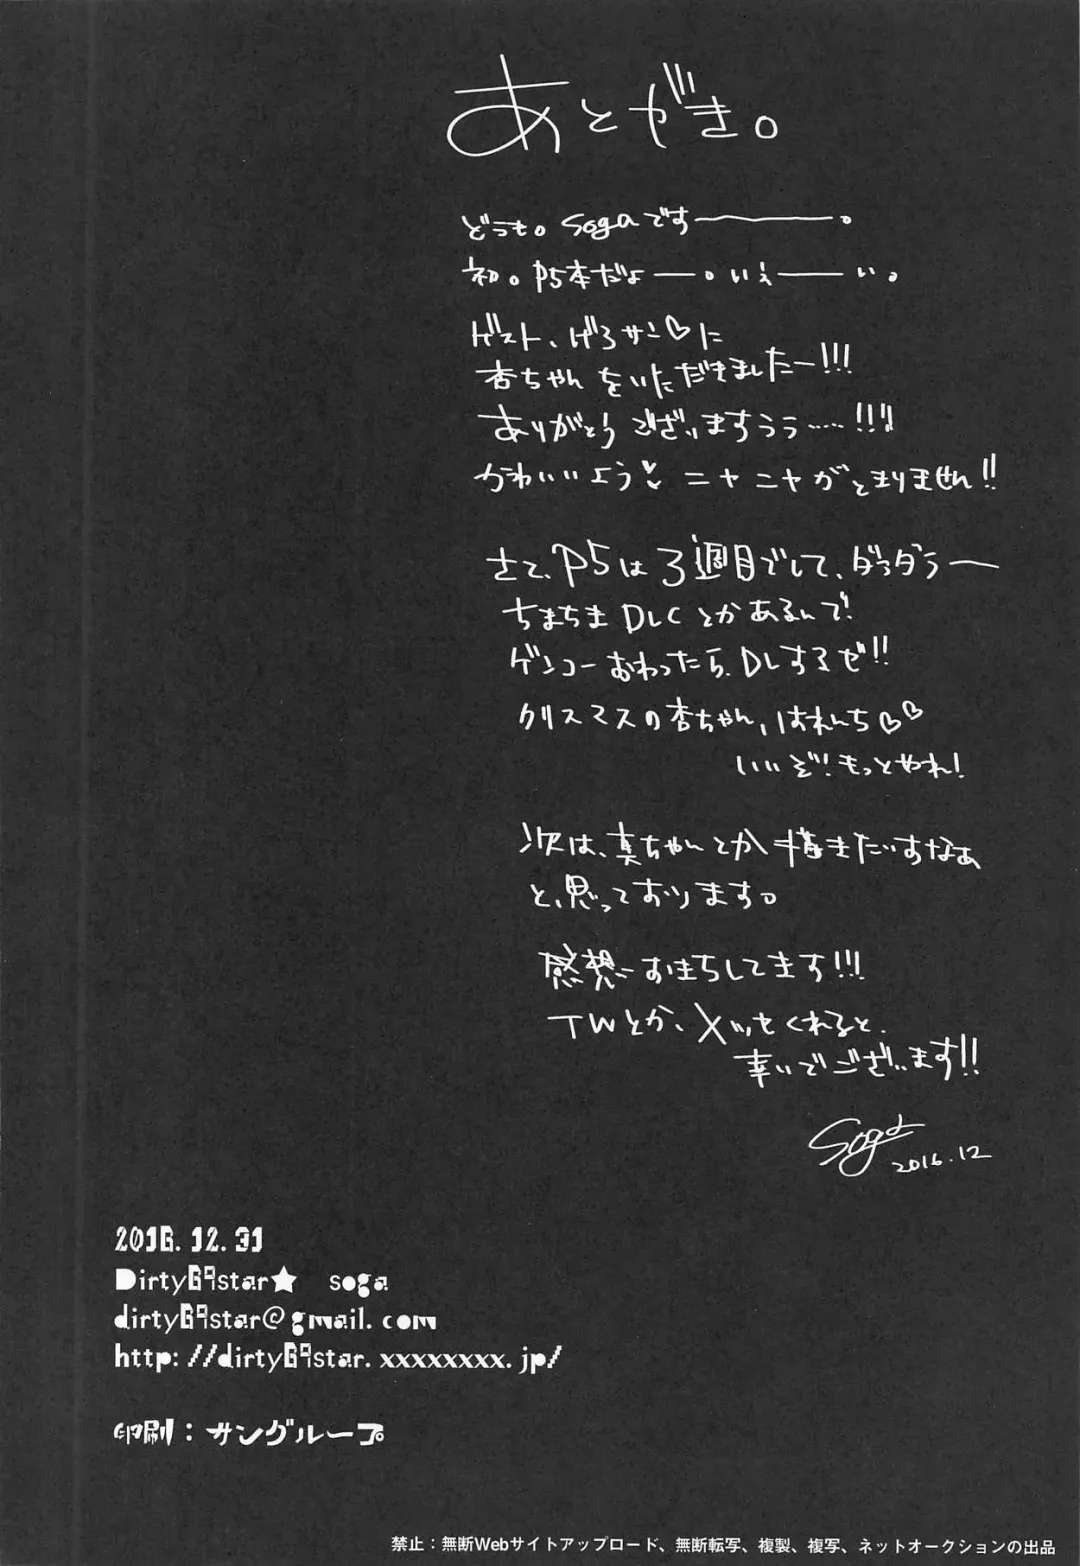 あとがき。
どうも。sogaです――。
初。P5本だよー―。いえ――い。
ゲスト、げろサン♡に
杏ちゃんをいただきましたー!!!
ありがとうございますうぅ……!!!
かわいいよう♥ ニヤニヤがとまりません!!
さて、P5は3週目でして、ダラダラー
ちまちまDLCとかあるんで!
ゲンコーおわったら、DLするぜ!!
クリスマスの杏ちゃん、はれんち♡♡
いいぞ!もっとやれ!
次は、真ちゃんとか描きたいすなあ
と、思っております。
感想おまちしてます!!!
TWとか、メッセくれると、
幸いでございます!!
Soga
2016.12
2016.12.31
Dirty69star★ soga
dirty69star@gmail.com
http://dirty69star.xxxxxxxx.jp/
印刷：サングループ
禁止：無断Webサイトアップロード、無断転写、複製、複写、ネットオークションの出品